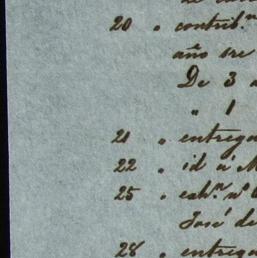 20 " contrib.n
año 1re
De 3 a
" 1
21 " entrega
22 " id á M
25 " exh.n nº
José de
28 " entrega